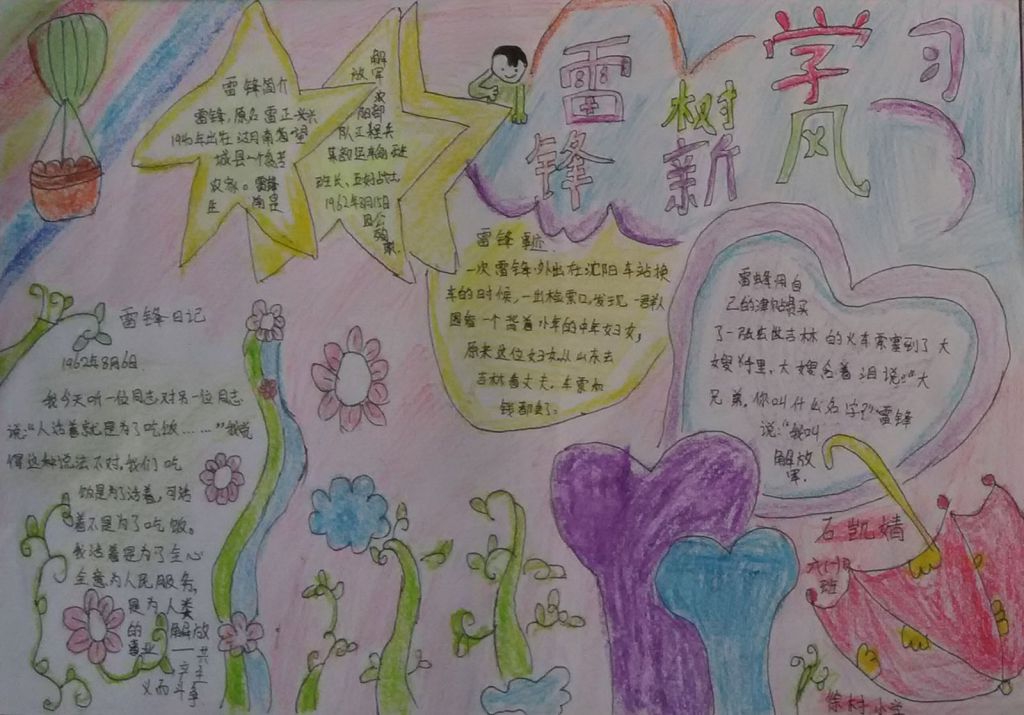 学习
雷锋
树新风
雷锋简介
雷锋,原名雷正兴
城县一个贫苦
农家。雷锋
生前是
解放军
沈阳部
队工程兵
某部运输连
班长、五好战士
1962年8月15日
因公
殉职
雷锋事迹
一次雷锋外出在沈阳车站换
车的时候,一出检票口,发现一群人
围着一个背着小年的中年妇女,
原来这位妇女从山东去
吉林看丈夫,车票和
钱都丢了。
雷锋用自
己的津贴费买
了一张去吉林的火车票塞到了大
嫂手里,大嫂含着泪说:“大
兄弟,你叫什么名字?”雷锋
说:“我叫
解放
军.
雷锋日记
1962年3月6日
我今天听一位同志对另一位同志
说:“人活着就是为了吃饭……”我觉
得这种说法不对,我们吃
饭是为了活着,可活
着不是为了吃饭。
我活着是为了全心
全意为人民服务,
是为人类
的解放
事业——共
产主
义而斗争
石凯婧
六(一)
班
徐村小学